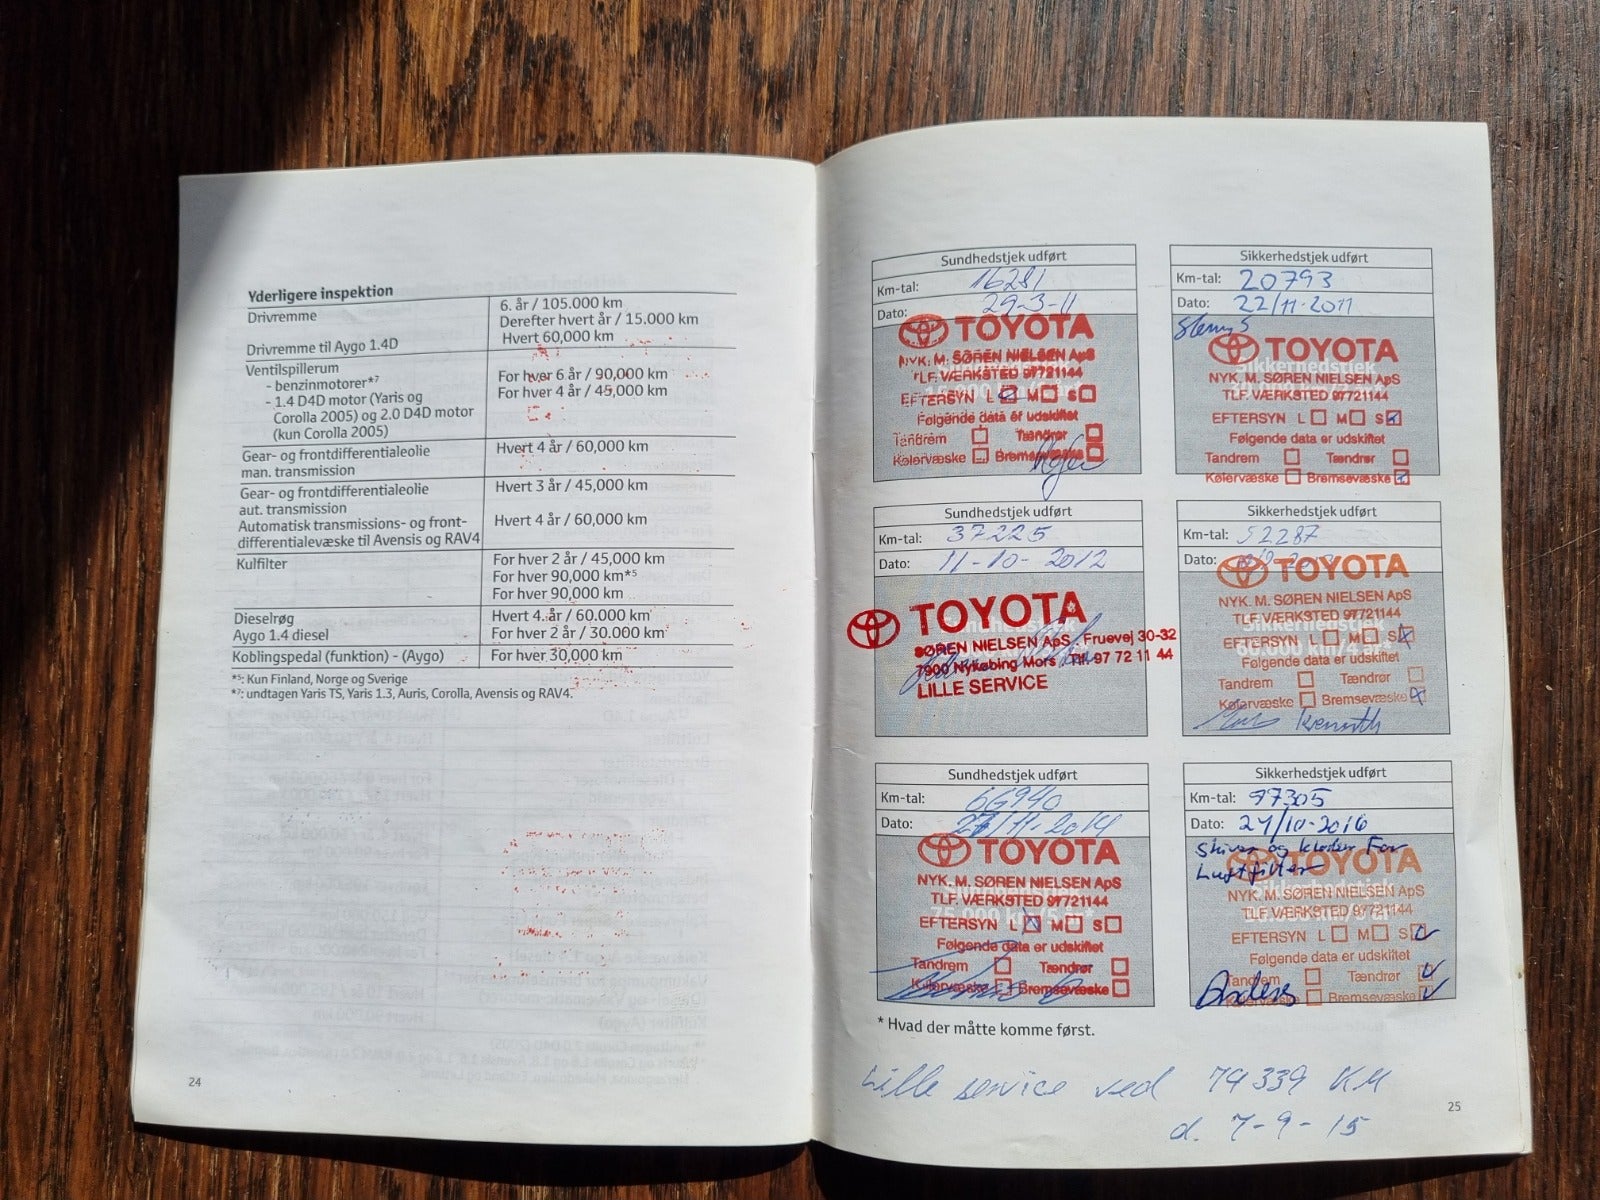 Yderligere inspektion
Drivremme
6. år / 105.000 km
Derefter hvert år / 15.000 km
Drivremme til Aygo 1.4D
Hvert 60,000 km
Ventilspillerum
- benzinmotorer*7
For hver 6 år / 90,000 km
- 1.4 D4D motor (Yaris og
For hver 4 år / 45,000 km
Corolla 2005) og 2.0 D4D motor
(kun Corolla 2005)
Gear- og frontdifferentialeolie
Hvert 4 år / 60,000 km
man. transmission
Gear- og frontdifferentialeolie
Hvert 3 år / 45,000 km
aut. transmission
Automatisk transmissions- og front-
Hvert 4 år / 60,000 km
differentialevæske til Avensis og RAV4
Kulfilter
For hver 2 år / 45,000 km
For hver 90,000 km*5
For hver 90,000 km
Dieselrøg
Hvert 4. år / 60.000 km
Aygo 1.4 diesel
For hver 2 år / 30.000 km
Koblingspedal (funktion) - (Aygo)
For hver 30,000 km
*5: Kun Finland, Norge og Sverige
*7: undtagen Yaris TS, Yaris 1.3, Auris, Corolla, Avensis og RAV4.
24
Sundhedstjek udført
Km-tal: 16281
Dato: 29-3-11
TOYOTA
NYK. M. SØREN NIELSEN ApS
TLF. VÆRKSTED 97721144
EFTERSYN L M S
Følgende data er udskiftet
Tandrem Tændrør
Kølervæske Bremsevæske
Sikkerhedstjek udført
Km-tal: 20793
Dato: 22/11-2011
TOYOTA
Sikkerhedstjek
NYK. M. SØREN NIELSEN ApS
TLF. VÆRKSTED 97721144
EFTERSYN L M S
Følgende data er udskiftet
Tandrem Tændrør
Kølervæske Bremsevæske
Sundhedstjek udført
Km-tal: 37225
Dato: 11-10-2012
TOYOTA
SØREN NIELSEN ApS . Fruevej 30-32
7900 Nykøbing Mors . Tlf. 97 72 11 44
LILLE SERVICE
Sikkerhedstjek udført
Km-tal: 52287
Dato:
TOYOTA
NYK. M. SØREN NIELSEN ApS
TLF. VÆRKSTED 97721144
Sikkerhedstjek
EFTERSYN L M S
60.000 km/4 år*
Følgende data er udskiftet
Tandrem Tændrør
Kølervæske Bremsevæske
Kenneth
Sundhedstjek udført
Km-tal: 66940
Dato: 27/11-2014
TOYOTA
NYK. M. SØREN NIELSEN ApS
TLF. VÆRKSTED 97721144
75.000 km/5 år*
EFTERSYN L M S
Følgende data er udskiftet
Tandrem Tændrør
Kølervæske Bremsevæske
Sikkerhedstjek udført
Km-tal: 97305
Dato: 27/10-2016
Skiver og klodser For
Luftfilter
TOYOTA
NYK. M. SØREN NIELSEN ApS
TLF. VÆRKSTED 97721144
EFTERSYN L M S
Følgende data er udskiftet
Tandrem Tændrør
Kølervæske Bremsevæske
Anders
* Hvad der måtte komme først.
Lille service ved 79339 KM
d. 7-9-15
25